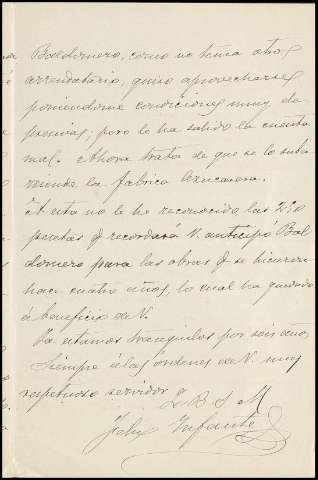 Baldomero, como no tenia otro
arrendatario, quiso aprovecharse
poniendome condiciones muy de
presivas; pero le ha salido la cuenta
mal. Ahora trata de que se lo suba
rriende la fabrica Azucarera.
A esta no le he reconocido las 250
pesetas q recordará V. anticipó Bal
domero para las obras q se hicieron
hace cuatro años, lo cual ha quedado
á beneficio de V.
Ya estamos tranquilos por seis años
Siempre á las órdenes de V. muy
respetuoso servidor q
L B S M
Felix Infante